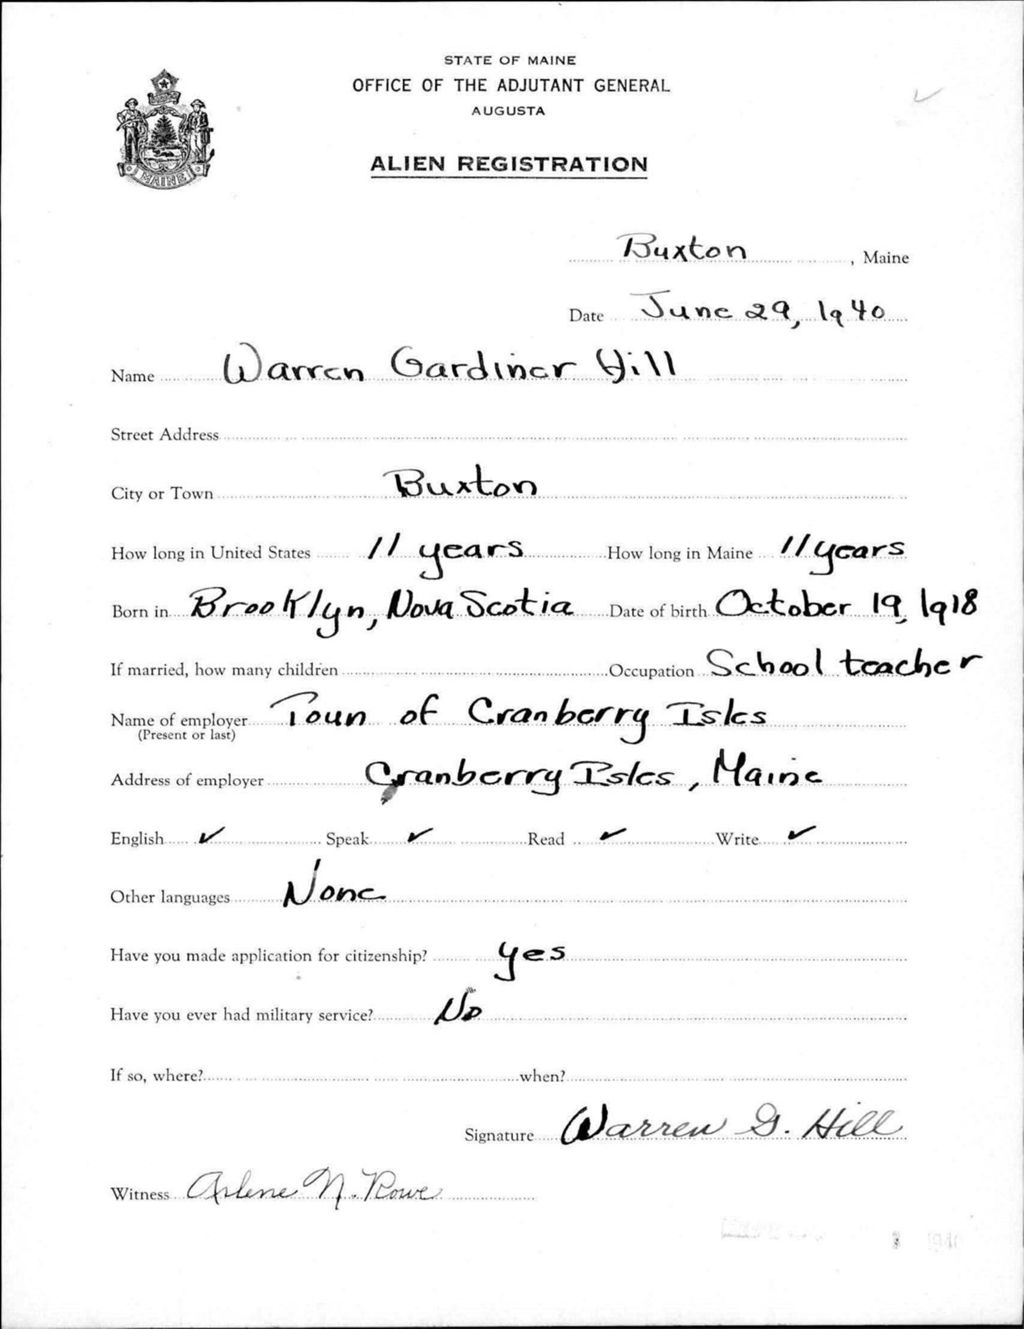 STATE OF MAINE
OFFICE OF THE ADJUTANT GENERAL
AUGUSTA
MAINE
ALIEN REGISTRATION
Buxton, Maine
Date June 29, 1940
Name Warren Gardiner Hill
Street Address
City or Town Buxton
How long in United States 11 years How long in Maine 11 years
Born in Brooklyn, Nova Scotia Date of birth October 19, 1918
If married, how many children Occupation School teacher
Name of employer Town of Cranberry Isles
(Present or last)
Address of employer Cranberry Isles, Maine
English ✓ Speak ✓ Read ✓ Write ✓
Other languages None
Have you made application for citizenship? yes
Have you ever had military service? No
If so, where? when?
Signature Warren G. Hill
Witness Arlene N. Rowe
1940